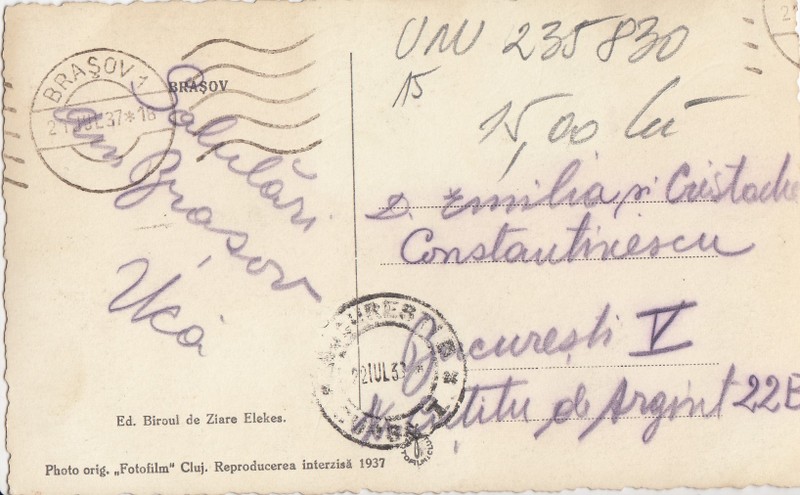 BRAȘOV 1
21 IUL. 37 * 18
BRAȘOV
Salutări
din Brașov
Uca
235830
15
15,00 lei
D. Emilia și Cristache
Constantinescu
București V
de Argint 22B
BUCUREȘTI
22 IUL 37
Ed. Biroul de Ziare Elekes.
Photo orig. „Fotofilm" Cluj. Reproducerea interzisă 1937